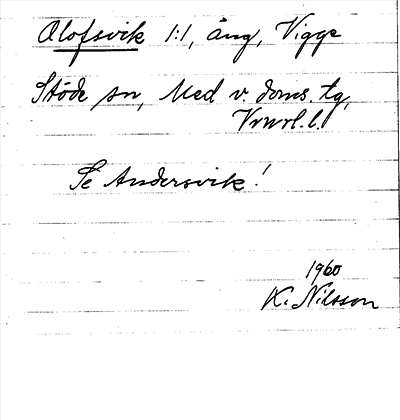 Olofsvik 1:1, äng, Vigge
Stöde sn, Med v. doms. tg,
Vnrl. l.
Se Andersvik!
1960
K. Nilsson